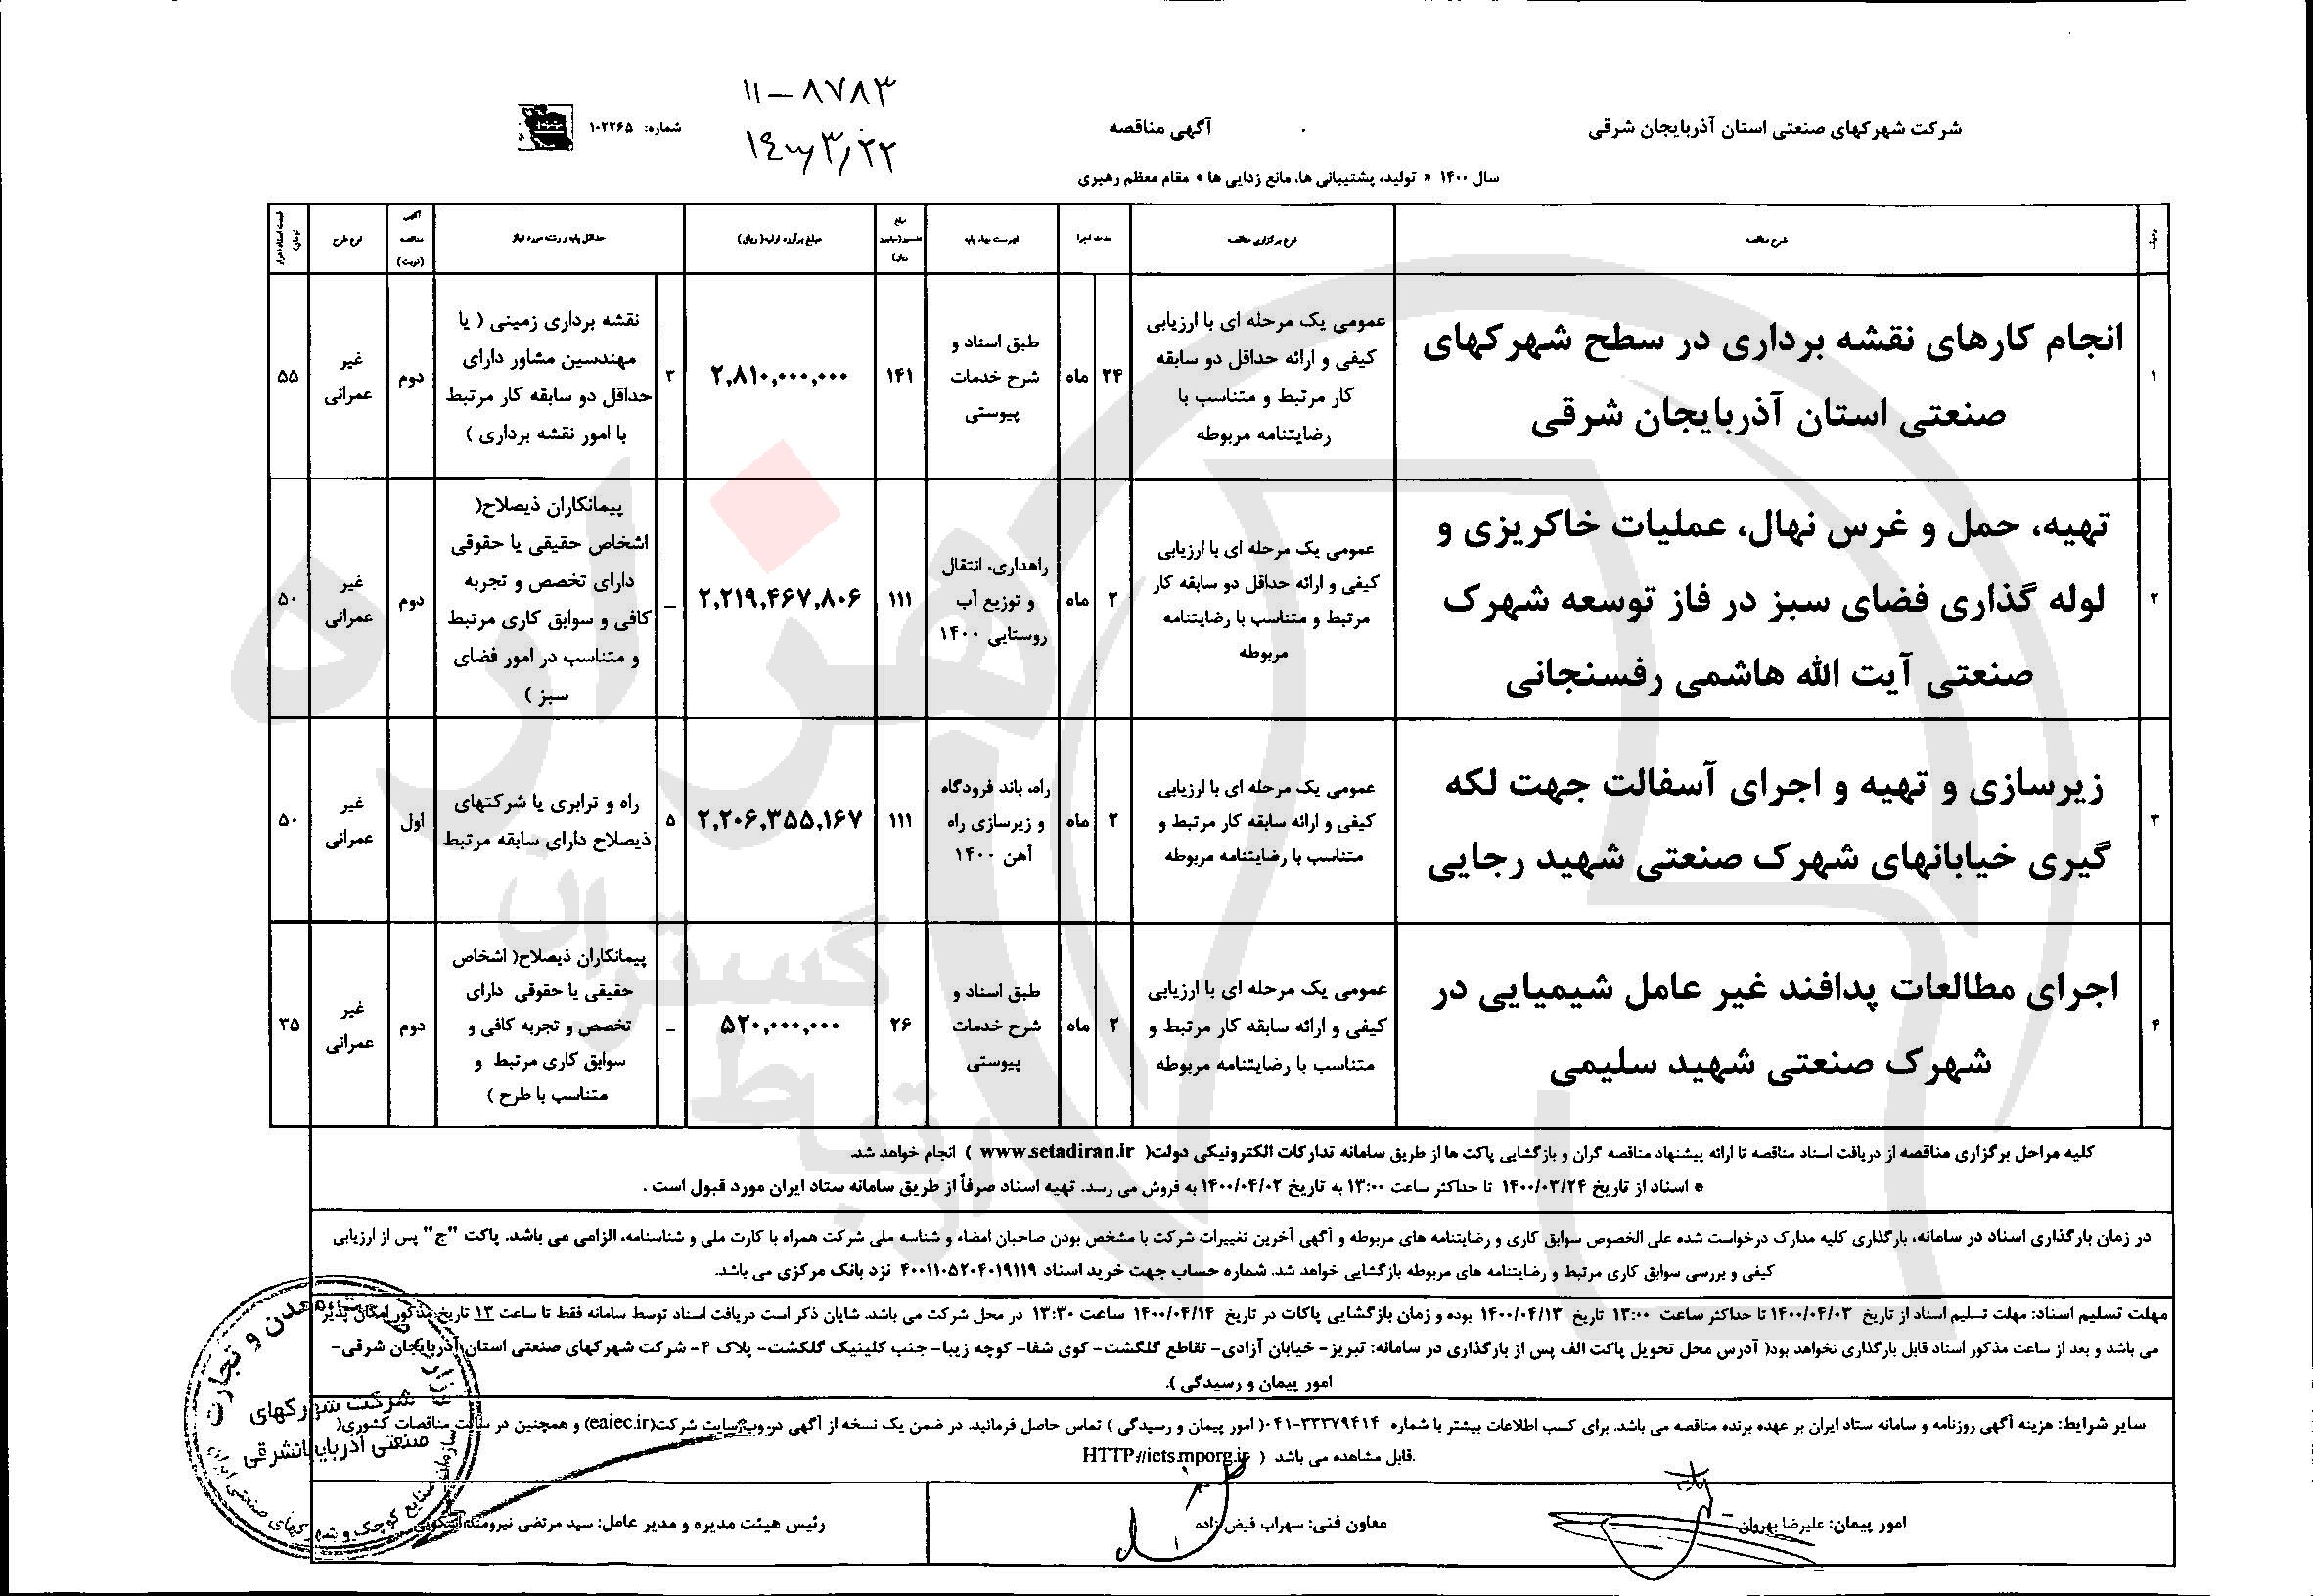 ۱۱-۸۷۸۳
شرکت شهرکهای صنعتی استان آذربایجان شرقی
آگهی مناقصه
شماره: ۱۰۲۲۶۵
سال ۱۴۰۰ « تولید، پشتیبانی ها، مانع زدایی ها » مقام معظم رهبری
ردیف
شرح مناقصه
نوع برگزاری مناقصه
مدت اجرا
فهرست بهاء پایه
مبلغ برآورد اولیه( ریالی)
حداقل پایه و رشته مورد نیاز
آگهی مناقصه (نوبت)
نوع طرح
۱
انجام کارهای نقشه برداری در سطح شهرکهای
صنعتی استان آذربایجان شرقی
عمومی یک مرحله ای با ارزیابی
کیفی و ارائه حداقل دو سابقه
کار مرتبط و متناسب با
رضایتنامه مربوطه
۲۴ ماه
طبق اسناد و
شرح خدمات
پیوستی
۱۴۱
۲,۸۱۰,۰۰۰,۰۰۰
۳
نقشه برداری زمینی ( یا
مهندسین مشاور دارای
حداقل دو سابقه کار مرتبط
با امور نقشه برداری )
دوم
غیر
عمرانی
۵۵
۲
تهیه، حمل و غرس نهال، عملیات خاکریزی و
لوله گذاری فضای سبز در فاز توسعه شهرک
صنعتی آیت الله هاشمی رفسنجانی
عمومی یک مرحله ای با ارزیابی
کیفی و ارائه حداقل دو سابقه کار
مرتبط و متناسب با رضایتنامه
مربوطه
۲ ماه
راهداری، انتقال
و توزیع آب
روستایی ۱۴۰۰
۱۱۱
۲,۲۱۹,۴۶۷,۸۰۶
–
پیمانکاران ذیصلاح(
اشخاص حقیقی یا حقوقی
دارای تخصص و تجربه
کافی و سوابق کاری مرتبط
و متناسب در امور فضای
سبز )
دوم
غیر
عمرانی
۵۰
۳
زیرسازی و تهیه و اجرای آسفالت جهت لکه
گیری خیابانهای شهرک صنعتی شهید رجایی
عمومی یک مرحله ای با ارزیابی
کیفی و ارائه سابقه کار مرتبط و
متناسب با رضایتنامه مربوطه
۲ ماه
راه، باند فرودگاه
و زیرسازی راه
آهن ۱۴۰۰
۱۱۱
۲,۲۰۶,۳۵۵,۱۶۷
۵
راه و ترابری یا شرکتهای
ذیصلاح دارای سابقه مرتبط
اول
غیر
عمرانی
۵۰
۴
اجرای مطالعات پدافند غیر عامل شیمیایی در
شهرک صنعتی شهید سلیمی
عمومی یک مرحله ای با ارزیابی
کیفی و ارائه سابقه کار مرتبط و
متناسب با رضایتنامه مربوطه
۲ ماه
طبق اسناد و
شرح خدمات
پیوستی
۲۶
۵۲۰,۰۰۰,۰۰۰
–
پیمانکاران ذیصلاح( اشخاص
حقیقی یا حقوقی دارای
تخصص و تجربه کافی و
سوابق کاری مرتبط و
متناسب با طرح )
دوم
غیر
عمرانی
۳۵
کلیه مراحل برگزاری مناقصه از دریافت اسناد مناقصه تا ارائه پیشنهاد مناقصه گران و بازگشایی پاکت ها از طریق سامانه تدارکات الکترونیکی دولت( www.setadiran.ir ) انجام خواهد شد.
* اسناد از تاریخ ۱۴۰۰/۰۳/۲۴ تا حداکثر ساعت ۱۳:۰۰ به تاریخ ۱۴۰۰/۰۴/۰۲ به فروش می رسد. تهیه اسناد صرفاً از طریق سامانه ستاد ایران مورد قبول است .
در زمان بارگذاری اسناد در سامانه، بارگذاری کلیه مدارک درخواست شده علی الخصوص سوابق کاری و رضایتنامه های مربوطه و آگهی آخرین تغییرات شرکت با مشخص بودن صاحبان امضاء و شناسه ملی شرکت همراه با کارت ملی و شناسنامه، الزامی می باشد. پاکت "ج" پس از ارزیابی
کیفی و بررسی سوابق کاری مرتبط و رضایتنامه های مربوطه بازگشایی خواهد شد. شماره حساب جهت خرید اسناد ۴۰۰۱۱۰۵۲۰۴۰۱۹۱۱۹ نزد بانک مرکزی می باشد.
مهلت تسلیم اسناد: مهلت تسلیم اسناد از تاریخ ۱۴۰۰/۰۴/۰۳ تا حداکثر ساعت ۱۳:۰۰ تاریخ ۱۴۰۰/۰۴/۱۳ بوده و زمان بازگشایی پاکات در تاریخ ۱۴۰۰/۰۴/۱۴ ساعت ۱۳:۳۰ در محل شرکت می باشد. شایان ذکر است دریافت اسناد توسط سامانه فقط تا ساعت ۱۳ تاریخ مذکور امکان پذیر
می باشد و بعد از ساعت مذکور اسناد قابل بارگذاری نخواهد بود( آدرس محل تحویل پاکت الف پس از بارگذاری در سامانه: تبریز- خیابان آزادی- تقاطع گلگشت- کوی شفا- کوچه زیبا- جنب کلینیک گلگشت- پلاک ۴- شرکت شهرکهای صنعتی استان آذربایجان شرقی-
امور پیمان و رسیدگی ).
سایر شرایط: هزینه آگهی روزنامه و سامانه ستاد ایران بر عهده برنده مناقصه می باشد. برای کسب اطلاعات بیشتر با شماره ۰۴۱-۳۳۳۷۹۴۱۴( امور پیمان و رسیدگی ) تماس حاصل فرمائید. در ضمن یک نسخه از آگهی در وب سایت شرکت(eaiec.ir) و همچنین در سایت مناقصات کشوری(
HTTP://iets.mporg.ir ) قابل مشاهده می باشد.
امور پیمان: علیرضا بهروان
معاون فنی: سهراب فیض زاده
رئیس هیئت مدیره و مدیر عامل: سید مرتضی نیرومند اسکویی
شرکت شهرکهای
صنعتی آذربایجانشرقی
هزاره
گستران